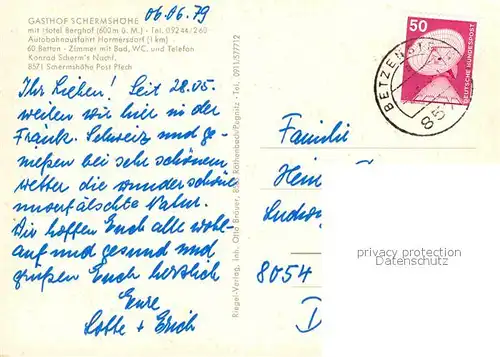 06.06.79
GASTHOF SCHERMSHÖHE
mit Hotel Berghof (600 m ü. M.) - Tel. 09244/260
Autobahnausfahrt Hormersdorf (1 km)
60 Betten - Zimmer mit Bad, WC, und Telefon
Konrad Scherm's Nachf.
8571 Schermshöhe Post Plech
Ihr Lieben! Seit 28.05.
weilen wir hier in der
Fränk. Schweiz und ge-
nießen bei sehr schönem
wetter die wunderschöne
unverfälschte Natur.
Wir hoffen Euch alle wohl-
auf und gesund und
grüßen Euch herzlich
Eure
Lotte + Erich
Riegel-Verlag, Inh. Otto Bräuer, 8505 Röthenbach/Pegnitz - Tel. 0911/577712
50
DEUTSCHE BUNDESPOST
BETZENST
857
Familie
Hein
Ludwi
8054
D
privacy protection
Datenschutz